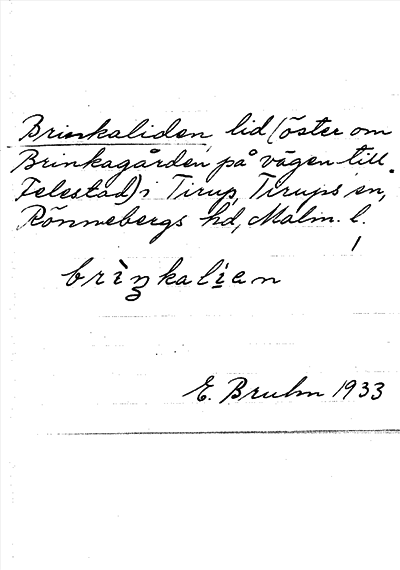 Brinkaliden, lid (öster om
Brinkagården på vägen till
Felestad) i Tirup, Tirups sn,
Rönnebergs hd, Malm. l.
brìŋkaliən
E. Bruhn 1933